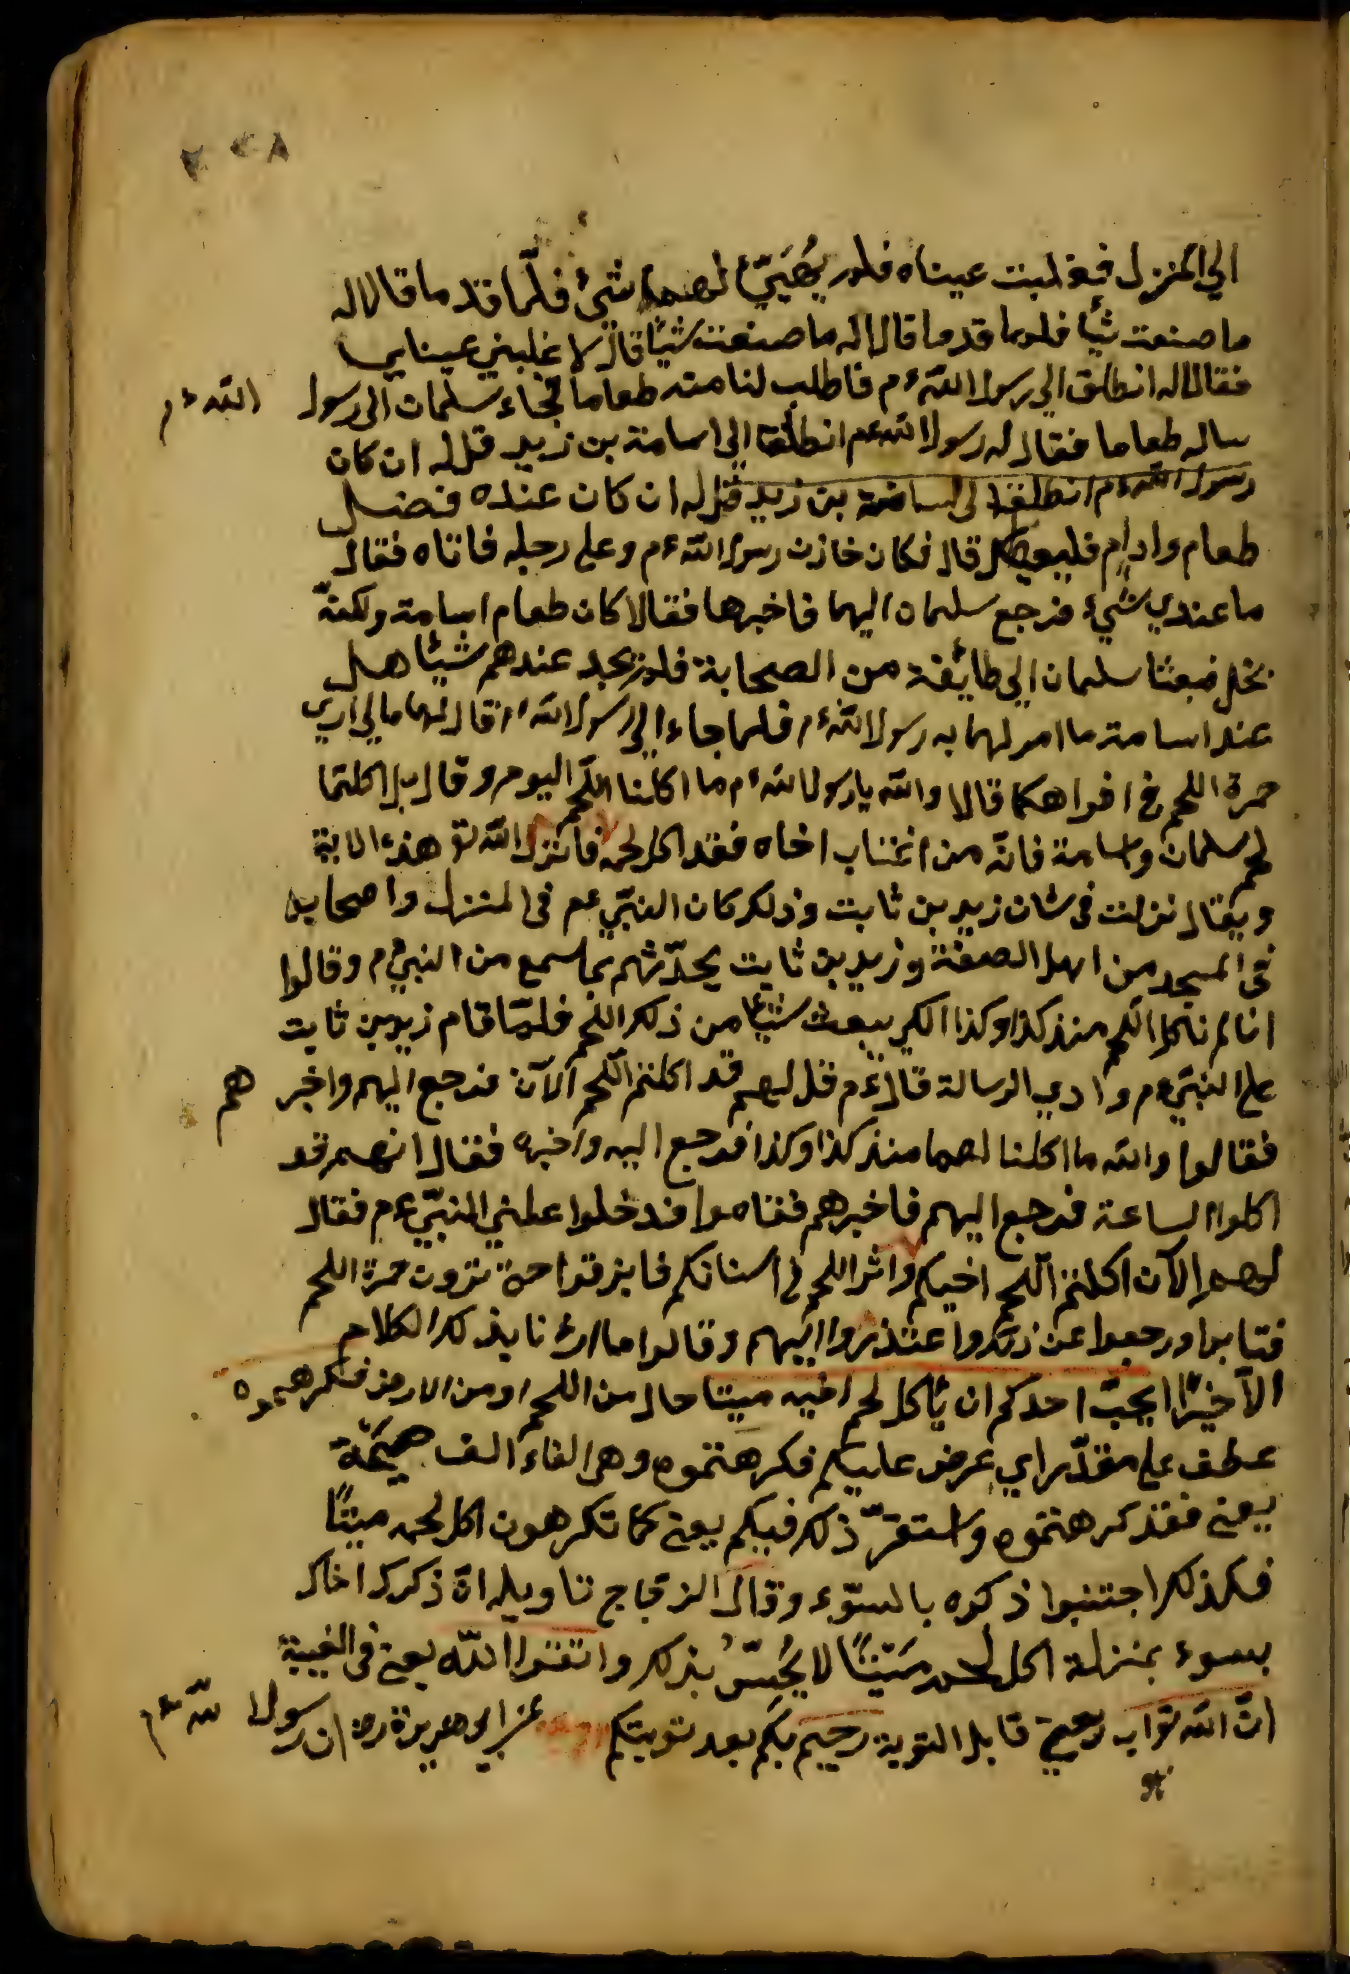 ٢٣٨
الي المنزل فغلبت عيناه فلم يُهَيِّئ لهما شيئ فلمّا قدما قالا له
ما صنعت شيأ فلما قدما قالا له ما صنعت شيئا قال لا غلبني عيناي
فقالا له انطلق الي رسول الله ءم فاطلب لنا منه طعاما فجاء سلمان الى رسول الله ءم
ساله طعاما فقال له رسول الله عم انطلق الي اسامة بن زيد قل له ان كان
رسول الله ءم انطلق الى اسامة بن زيد قل له ان كان عنده فضل
طعام وادام فليعطك قال فكان خازن رسول الله ءم وعلى رحله فاتاه فقال
ما عندي شيء فرجع سلمان اليهما فاخبرهما فقالا كان طعام اسامة ولكنّه
بخل فبعثا سلمان الي طائفة من الصحابة فلم يجد عندهم شيئا هل
عند اسامة ما امر لهما به رسول الله ءم فلما جاء الي رسول الله ءم قال لهما ما لي اري
حمرة اللحم في افواهكما قالا والله يا رسول الله ءم ما اكلنا اللحم اليوم وقال بل اكلتما
لحم سلمان واسامة فانّه من اغتاب اخاه فقد اكل لحمه فانزل الله تع هذه الاية
ويقال نزلت فى شان زيد بن ثابت وذلك كان النبي عم فى المنزل واصحابه
فى المسجد من اهل الصفة وزيد بن ثابت يحدّثهم بما سمع من النبي ءم وقالوا
انا لم ناكل اللحم منذ كذا وكذا لكي يبعث شيئا من ذلك اللحم فلمّا قام زيد بن ثابت
على النبي ءم وادي الرسالة قال ءم قل لهم قد اكلتم اللحم الآن فرجع اليهم واخبر هم
فقالوا والله ما اكلنا لحما منذ كذا وكذا فرجع اليه واخبره فقال انهم قد
اكلوا الساعة فرجع اليهم فاخبرهم فقاموا فدخلوا على النبّي ءم فقال
لهم الآن اكلتم اللحم اخيكم واثر اللحم في اسنانكم فابزقوا حتى ترون حمرة اللحم
فتابوا ورجعوا عن ذلك واعتذروا اليهم وقالوا ما اردنا بذلك الكلام
الا خيرًا ايحبّ احدكم ان يأكل لحم اخيه ميتا حال من اللحم او من الاخ فكرهتموه
عطف على مقدّر اي عرض عليكم فكرهتموه وهو الفاء الف صيحّة
يعنى فقد كرهتموه واستقرّ ذلك فيكم يعنى كما تكرهون اكل لحمه ميتًا
فكذلك اجتنبوا ذكره بالسوّء وقال الزجاج تاويله انّ ذكرك اخاك
بسوء بمنزلة اكل لحمه مَيّتًا لا يُحِسّ بذلك واتقوا الله يعنى فى الغيبة
انّ الله توّاب رحيم قابل التوبة رحيم بكم بعد توبتكم عن ابى هريرة رضـ ان رسول الله عم